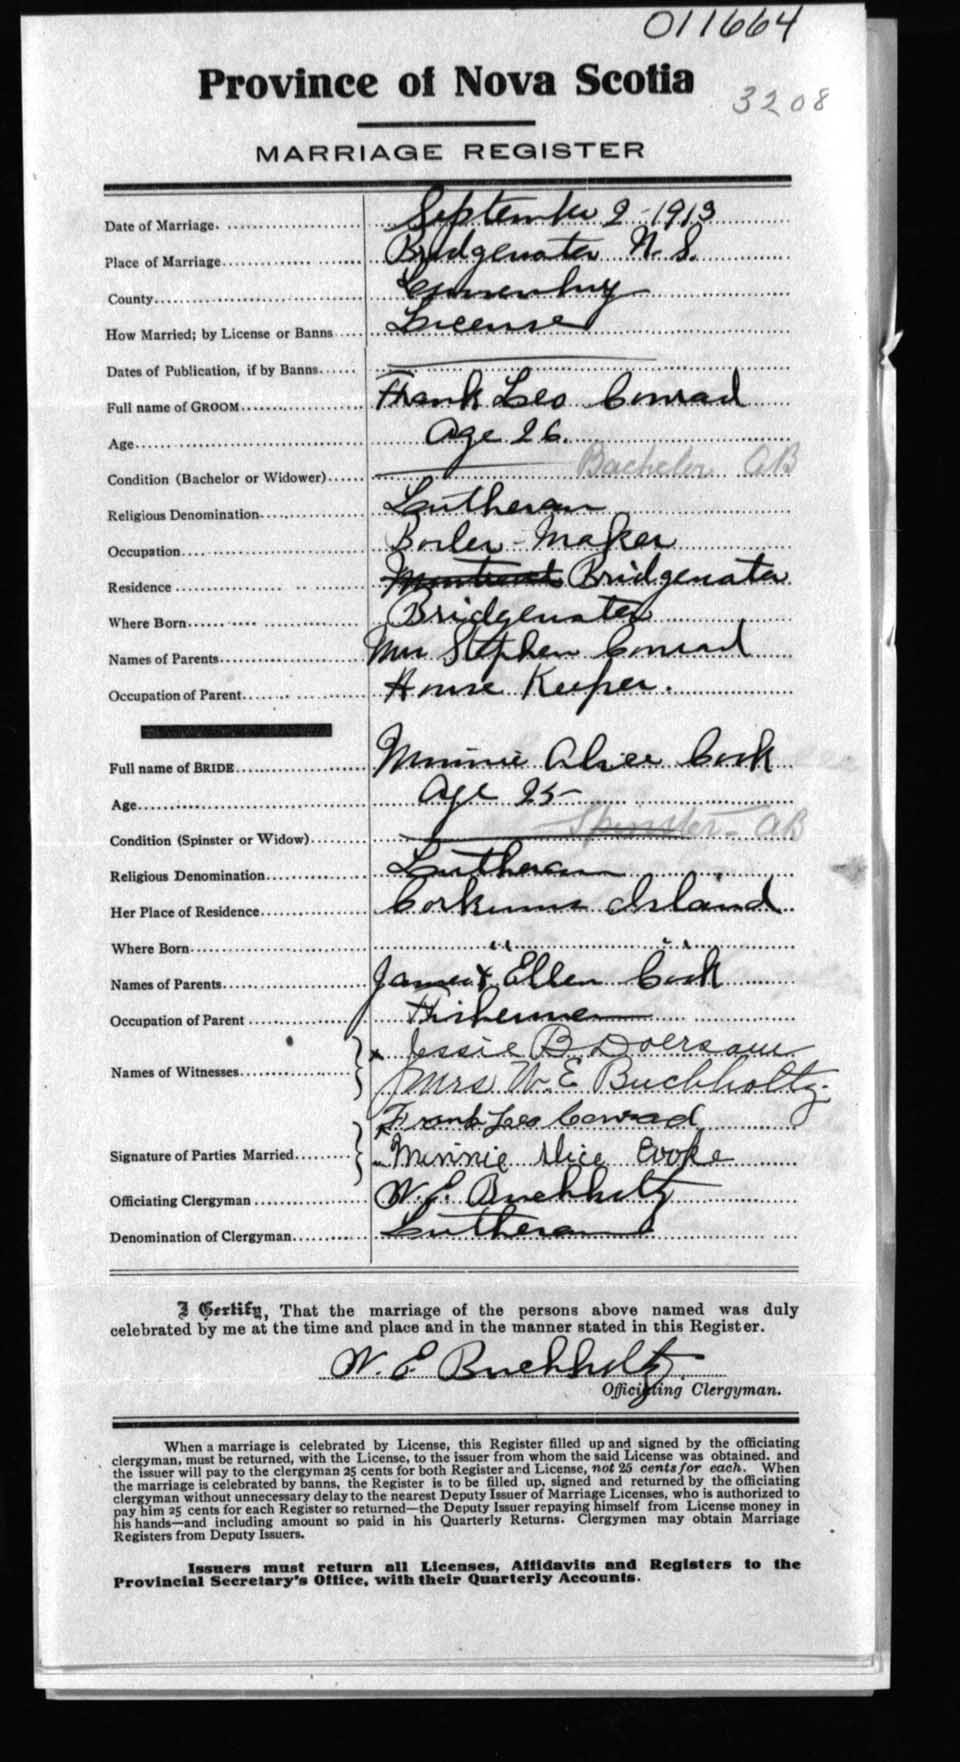 011664
Province of Nova Scotia
3208
MARRIAGE REGISTER
Date of Marriage. September 2 - 1913
Place of Marriage Bridgewater N. S.
County Lunenburg
How Married; by License or Banns License
Dates of Publication, if by Banns
Full name of GROOM Frank Leo Conrad
Age Age 26.
Condition (Bachelor or Widower) Bachelor AB
Religious Denomination Lutheran
Occupation Boiler-Maker
Residence Montreal Bridgewater
Where Born Bridgewater
Names of Parents Mrs Stephen Conrad
Occupation of Parent House Keeper.
Full name of BRIDE Minnie Alice Cook
Age Age 25-
Condition (Spinster or Widow) Spinster- AB
Religious Denomination Lutheran
Her Place of Residence Corkums Island
Where Born " "
Names of Parents James & Ellen Cook
Occupation of Parent Fisherman
Names of Witnesses Jessie B Doersam
Mrs W. E Buchholtz.
Signature of Parties Married Frank Leo Conrad
Minnie Alice Cooke
Officiating Clergyman W. E. Buchholtz
Denomination of Clergyman Lutheran
I Certify, That the marriage of the persons above named was duly
celebrated by me at the time and place and in the manner stated in this Register.
W. E Buchholtz.
Officiating Clergyman.
When a marriage is celebrated by License, this Register filled up and signed by the officiating
clergyman, must be returned, with the License, to the issuer from whom the said License was obtained. and
the issuer will pay to the clergyman 25 cents for both Register and License, not 25 cents for each. When
the marriage is celebrated by banns, the Register is to be filled up, signed and returned by the officiating
clergyman without unnecessary delay to the nearest Deputy Issuer of Marriage Licenses, who is authorized to
pay him 25 cents for each Register so returned—the Deputy Issuer repaying himself from License money in
his hands—and including amount so paid in his Quarterly Returns. Clergymen may obtain Marriage
Registers from Deputy Issuers.
Issuers must return all Licenses, Affidavits and Registers to the
Provincial Secretary's Office, with their Quarterly Accounts.